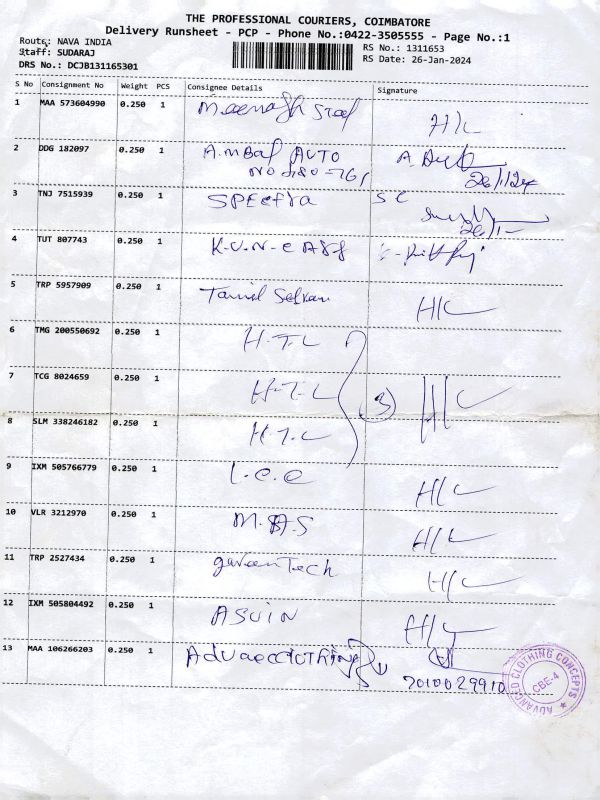 THE PROFESSIONAL COURIERS, COIMBATORE
Delivery Runsheet - PCP - Phone No.:0422-3505555 - Page No.:1
Route: NAVA INDIA
RS No.: 1311653
Staff: SUDARAJ
RS Date: 26-Jan-2024
DRS No.: DCJB131165301
S No Consignment No Weight PCS Consignee Details Signature
1 MAA 573604990 0.250 1 H/C
2 DDG 182097 0.250 1 A.M.Bal AUTO
26/1/24
3 TNJ 7515939 0.250 1 SPEctra S C
4 TUT 807743 0.250 1
5 TRP 5957909 0.250 1 Tamil Selvan H/C
6 TMG 200550692 0.250 1 H.T.L
7 TCG 8024659 0.250 1 H.T.L 3) H/C
8 SLM 338246182 0.250 1 H.T.L
9 IXM 505766779 0.250 1 L.C.C H/C
10 VLR 3212970 0.250 1 M.A.S H/C
11 TRP 2527434 0.250 1 H/C
12 IXM 505804492 0.250 1 ASVIN H/C
13 MAA 106266203 0.250 1
7010029910
ADVANCED CLOTHING CONCEPTS
CBE-4